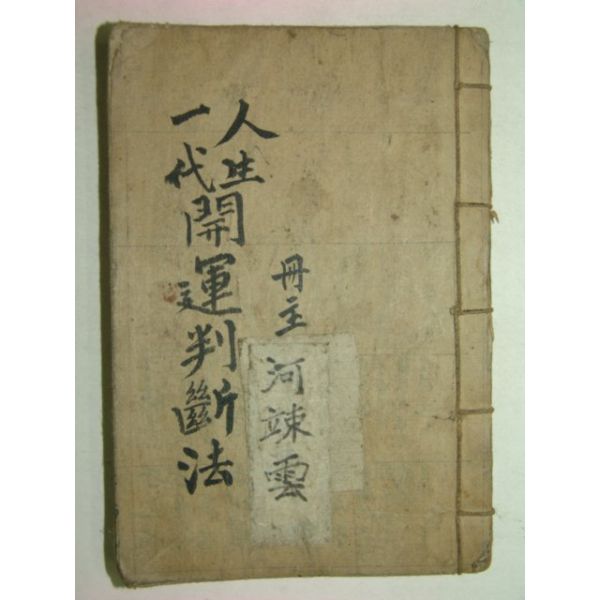 人生
一代
開運判斷法
冊主 河竦雲